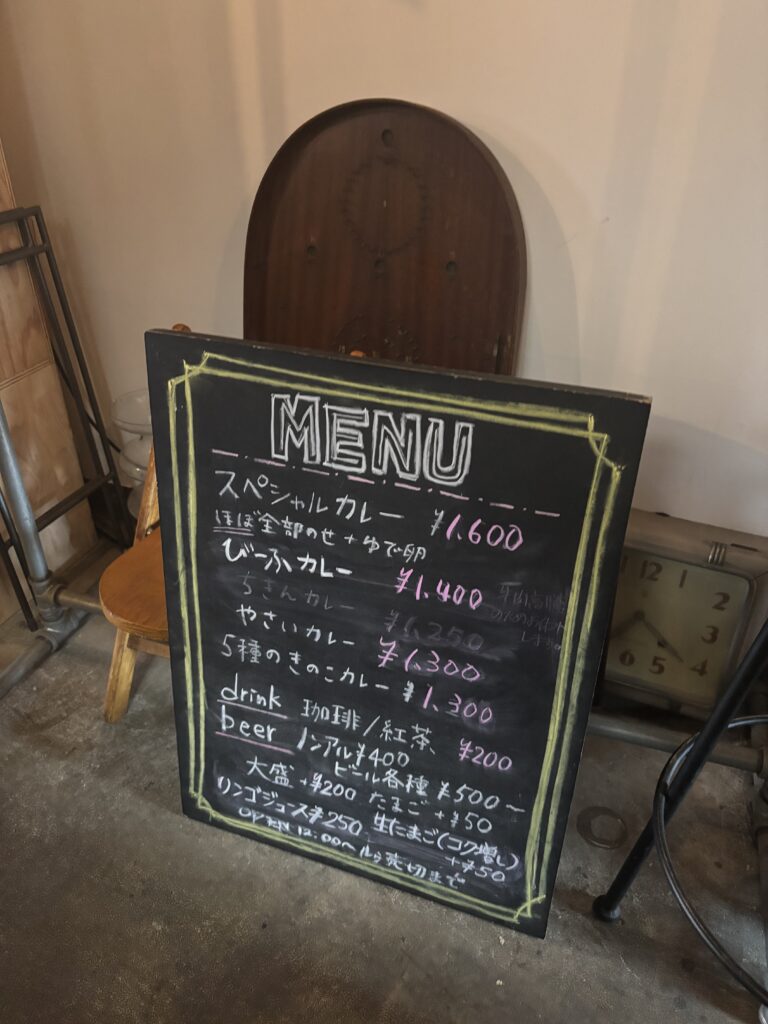 MENU
スペシャルカレー ¥1,600
ほぼ全部のせ+ゆで卵
びーふカレー ¥1,400
ちきんカレー ¥1,250
やさいカレー ¥1,300
5種のきのこカレー ¥1,300
drink 珈琲/紅茶 ¥200
beer ノンアル¥400
ビール各種 ¥500〜
大盛 +¥200 たまご +¥50
リンゴジュース¥250 生たまご(コク増し)
+¥50
OPEN 12:00〜 売切まで
12
2
3
4
5
6